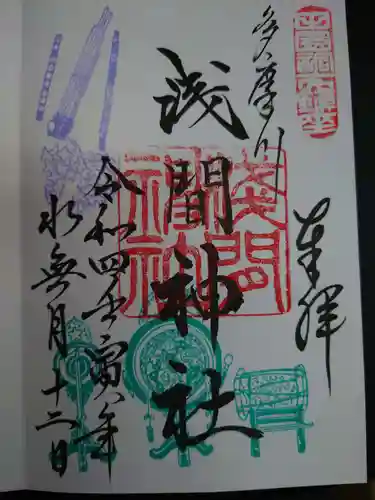 多摩川
奉拝
浅間神社
浅間神社
令和四壬寅年
水無月十二日